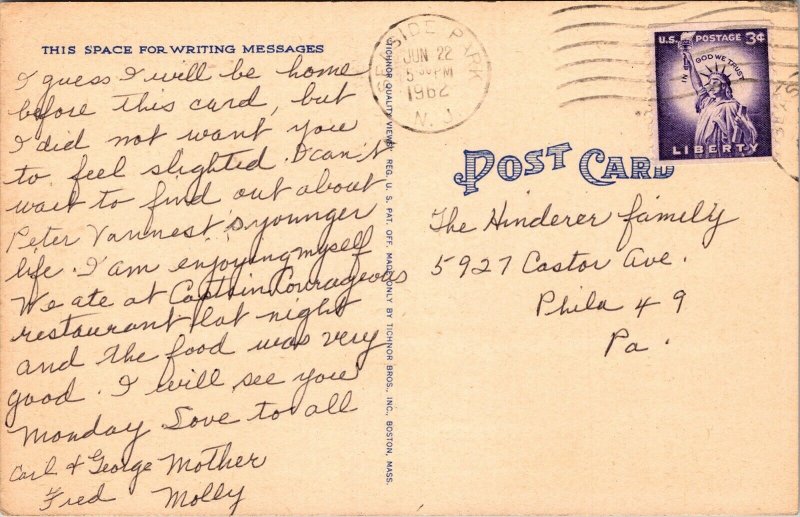 THIS SPACE FOR WRITING MESSAGES
I guess I will be home
before this card, but
I did not want you
to feel slighted. I can't
wait to find out about
Peter Vannest's younger
life. I am enjoying myself
We ate at Captain Courageous
restaurant last night
and the food was very
good. I will see you
Monday Love to all
Carl & George Mother
Fred Molly
TICHNOR QUALITY VIEWS REG. U. S. PAT. OFF. MADE ONLY BY TICHNOR BROS., INC., BOSTON, MASS.
SEASIDE PARK
JUN 22
5 PM
1962
N. J.
U.S. POSTAGE 3¢
IN GOD WE TRUST
LIBERTY
POST CARD
The Hinderer family
5927 Castor Ave.
Phila 49
Pa.